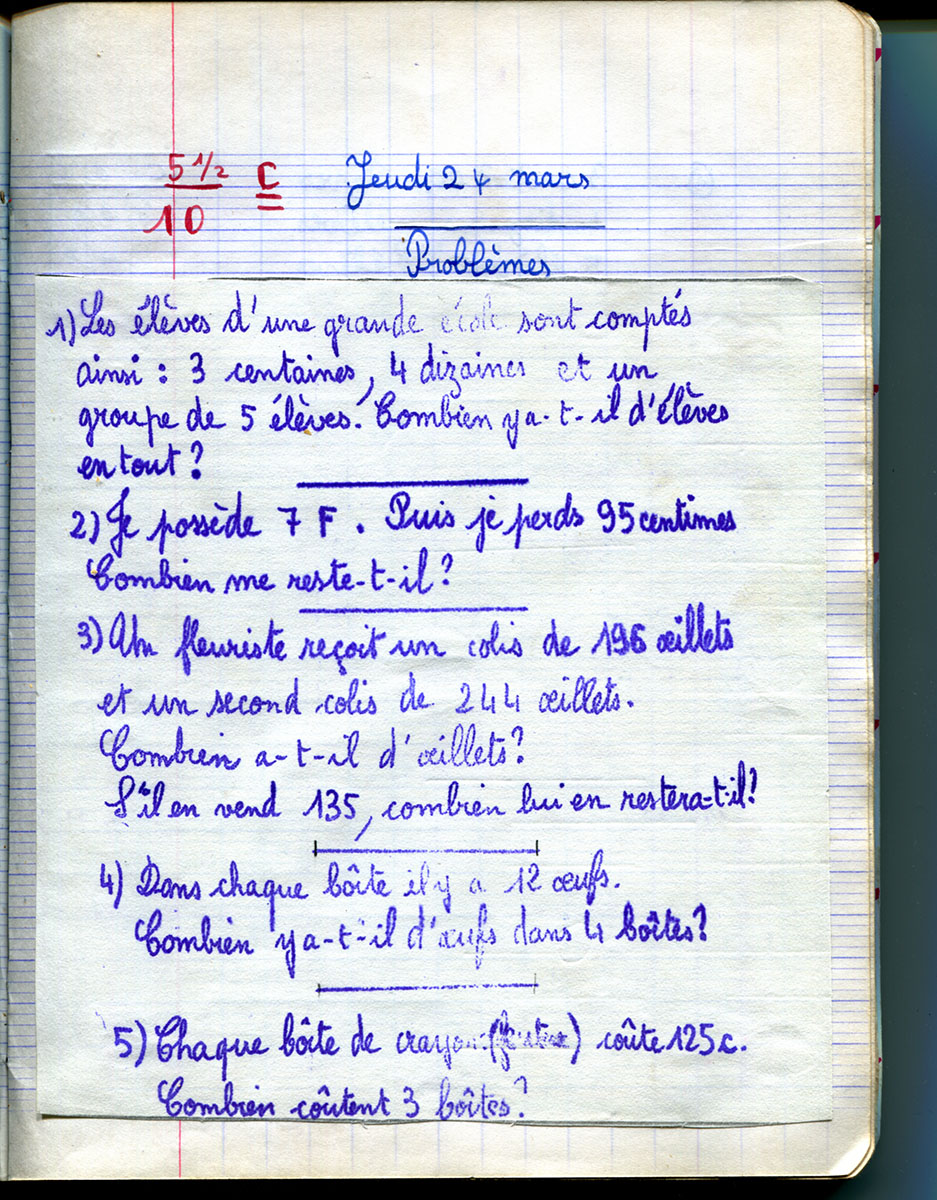 5 1/2 C Jeudi 24 mars
10
Problèmes
1) Les élèves d'une grande école sont comptés
ainsi : 3 centaines, 4 dizaines et un
groupe de 5 élèves. Combien y a-t-il d'élèves
en tout ?
2) Je possède 7 F. Puis je perds 95 centimes
Combien me reste-t-il ?
3) Un fleuriste reçoit un colis de 196 œillets
et un second colis de 244 œillets.
Combien a-t-il d'œillets ?
S'il en vend 135, combien lui en restera-t-il ?
4) Dans chaque boîte il y a 12 œufs.
Combien y a-t-il d'œufs dans 4 boîtes ?
5) Chaque boîte de crayons coûte 125 c.
Combien coûtent 3 boîtes ?